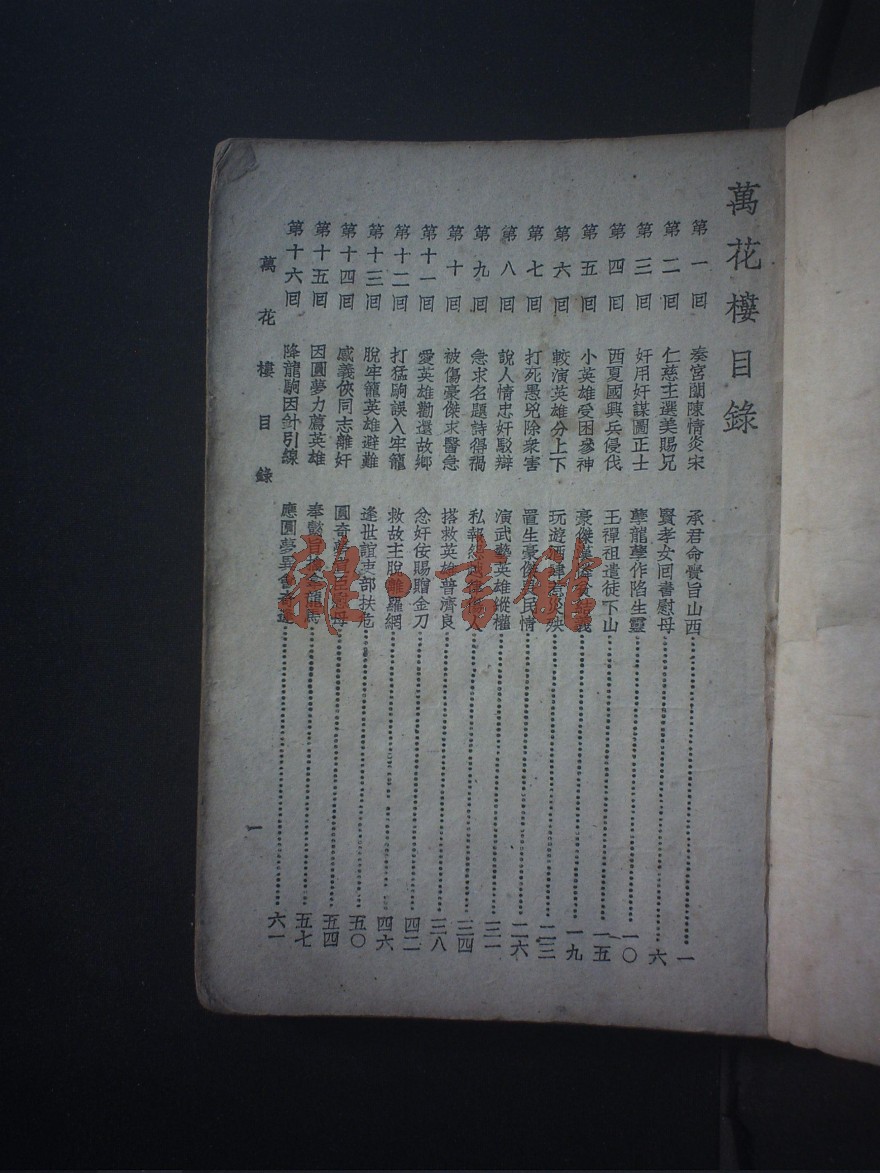 萬花樓目錄
第一回 奏宮闈陳情炎宋 承君命賫旨山西 一
第二回 仁慈主選美賜兄 賢孝女回書慰母 六
第三回 奸用奸謀圖正士 孽龍孽作陷生靈 一〇
第四回 西夏國興兵侵伐 王禪祖遣徒下山 一五
第五回 小英雄受困參神 豪傑漢 義 一九
第六回 較演英雄分上下 玩遊酒 殃 二三
第七回 打死愚兇除衆害 置生豪傑 民情 二六
第八回 說人情忠奸駁辯 演武藝英雄縱權 三一
第九回 急求名題詩得禍 私報怨 人 三四
第十回 被傷豪傑求醫急 搭救英雄普濟良 三八
第十一回 愛英雄勸還故鄉 忿奸佞賜贈金刀 四二
第十二回 打猛駒誤入牢籠 救故主脫離羅網 四六
第十三回 脫牢籠英雄避難 逢世誼吏部扶危 五〇
第十四回 感義俠同志離奸 圓奇夢 母 五四
第十五回 因圓夢力薦英雄 奉懿旨 龍馬 五七
第十六回 降龍駒因針引線 應圓夢異會奇逢 六一
萬花樓目錄
一
雜·書館